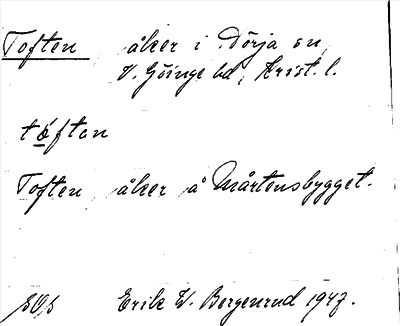 Toften åker i Dörja sn,
V. Göinge hd, Krist. l.
tåften
Toften åker å Mårtensbygget.
Erik W. Bergenrud 1947.